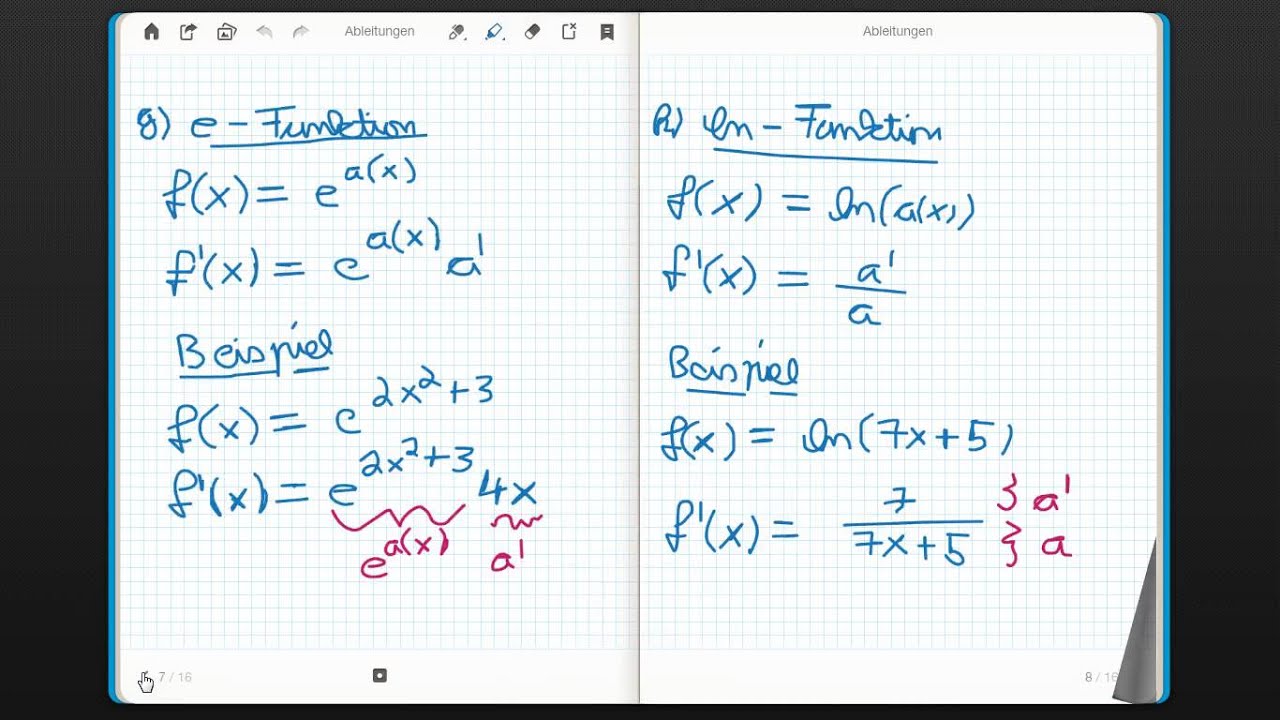 Ableitungen
g) e-Funktion
f(x) = e^{a(x)}
f'(x) = e^{a(x)} a'
Beispiel
f(x) = e^{2x²+3}
f'(x) = e^{2x²+3} 4x
e^{a(x)} a'
7 / 16
Ableitungen
h) ln-Funktion
f(x) = ln(a(x))
f'(x) = a'/a
Beispiel
f(x) = ln(7x+5)
f'(x) = 7/(7x+5) } a' } a
8 / 16